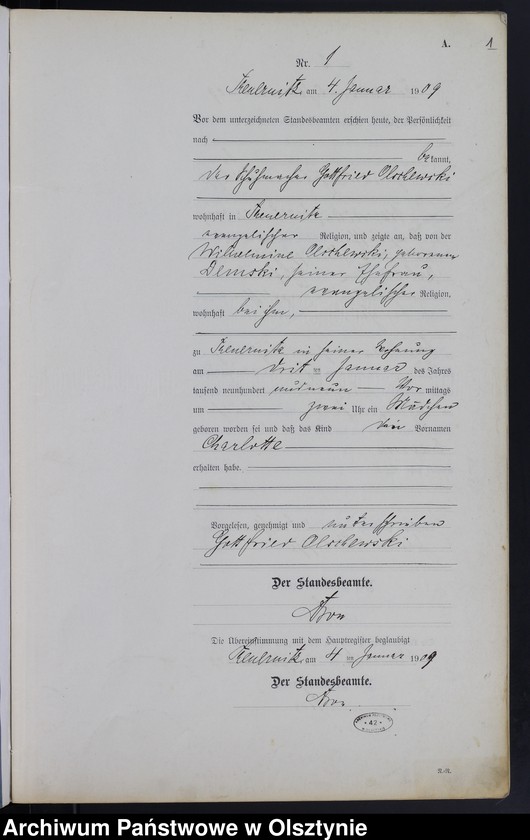 A.
1
Nr. 1
am 4. Januar 1909
Vor dem unterzeichneten Standesbeamten erschien heute, der Persönlichkeit
nach
bekannt,
der Schuhmacher Gottfried Olschewski
wohnhaft in
evangelischer Religion, und zeigte an, daß von der
Wilhelmine Olschewski, geborenen
Demski, seiner Ehefrau,
evangelischer Religion,
wohnhaft bei ihm,
zu in seiner Wohnung
am dritten Januar des Jahres
tausend neunhundert und neun Vor mittags
um zwei Uhr ein Mädchen
geboren worden sei und daß das Kind den Vornamen
Charlotte
erhalten habe.
Vorgelesen, genehmigt und unterschrieben
Gottfried Olschewski
Der Standesbeamte.
Die Übereinstimmung mit dem Hauptregister beglaubigt
am 4 ten Januar 1909
Der Standesbeamte.
42
Archiwum Państwowe w Olsztynie